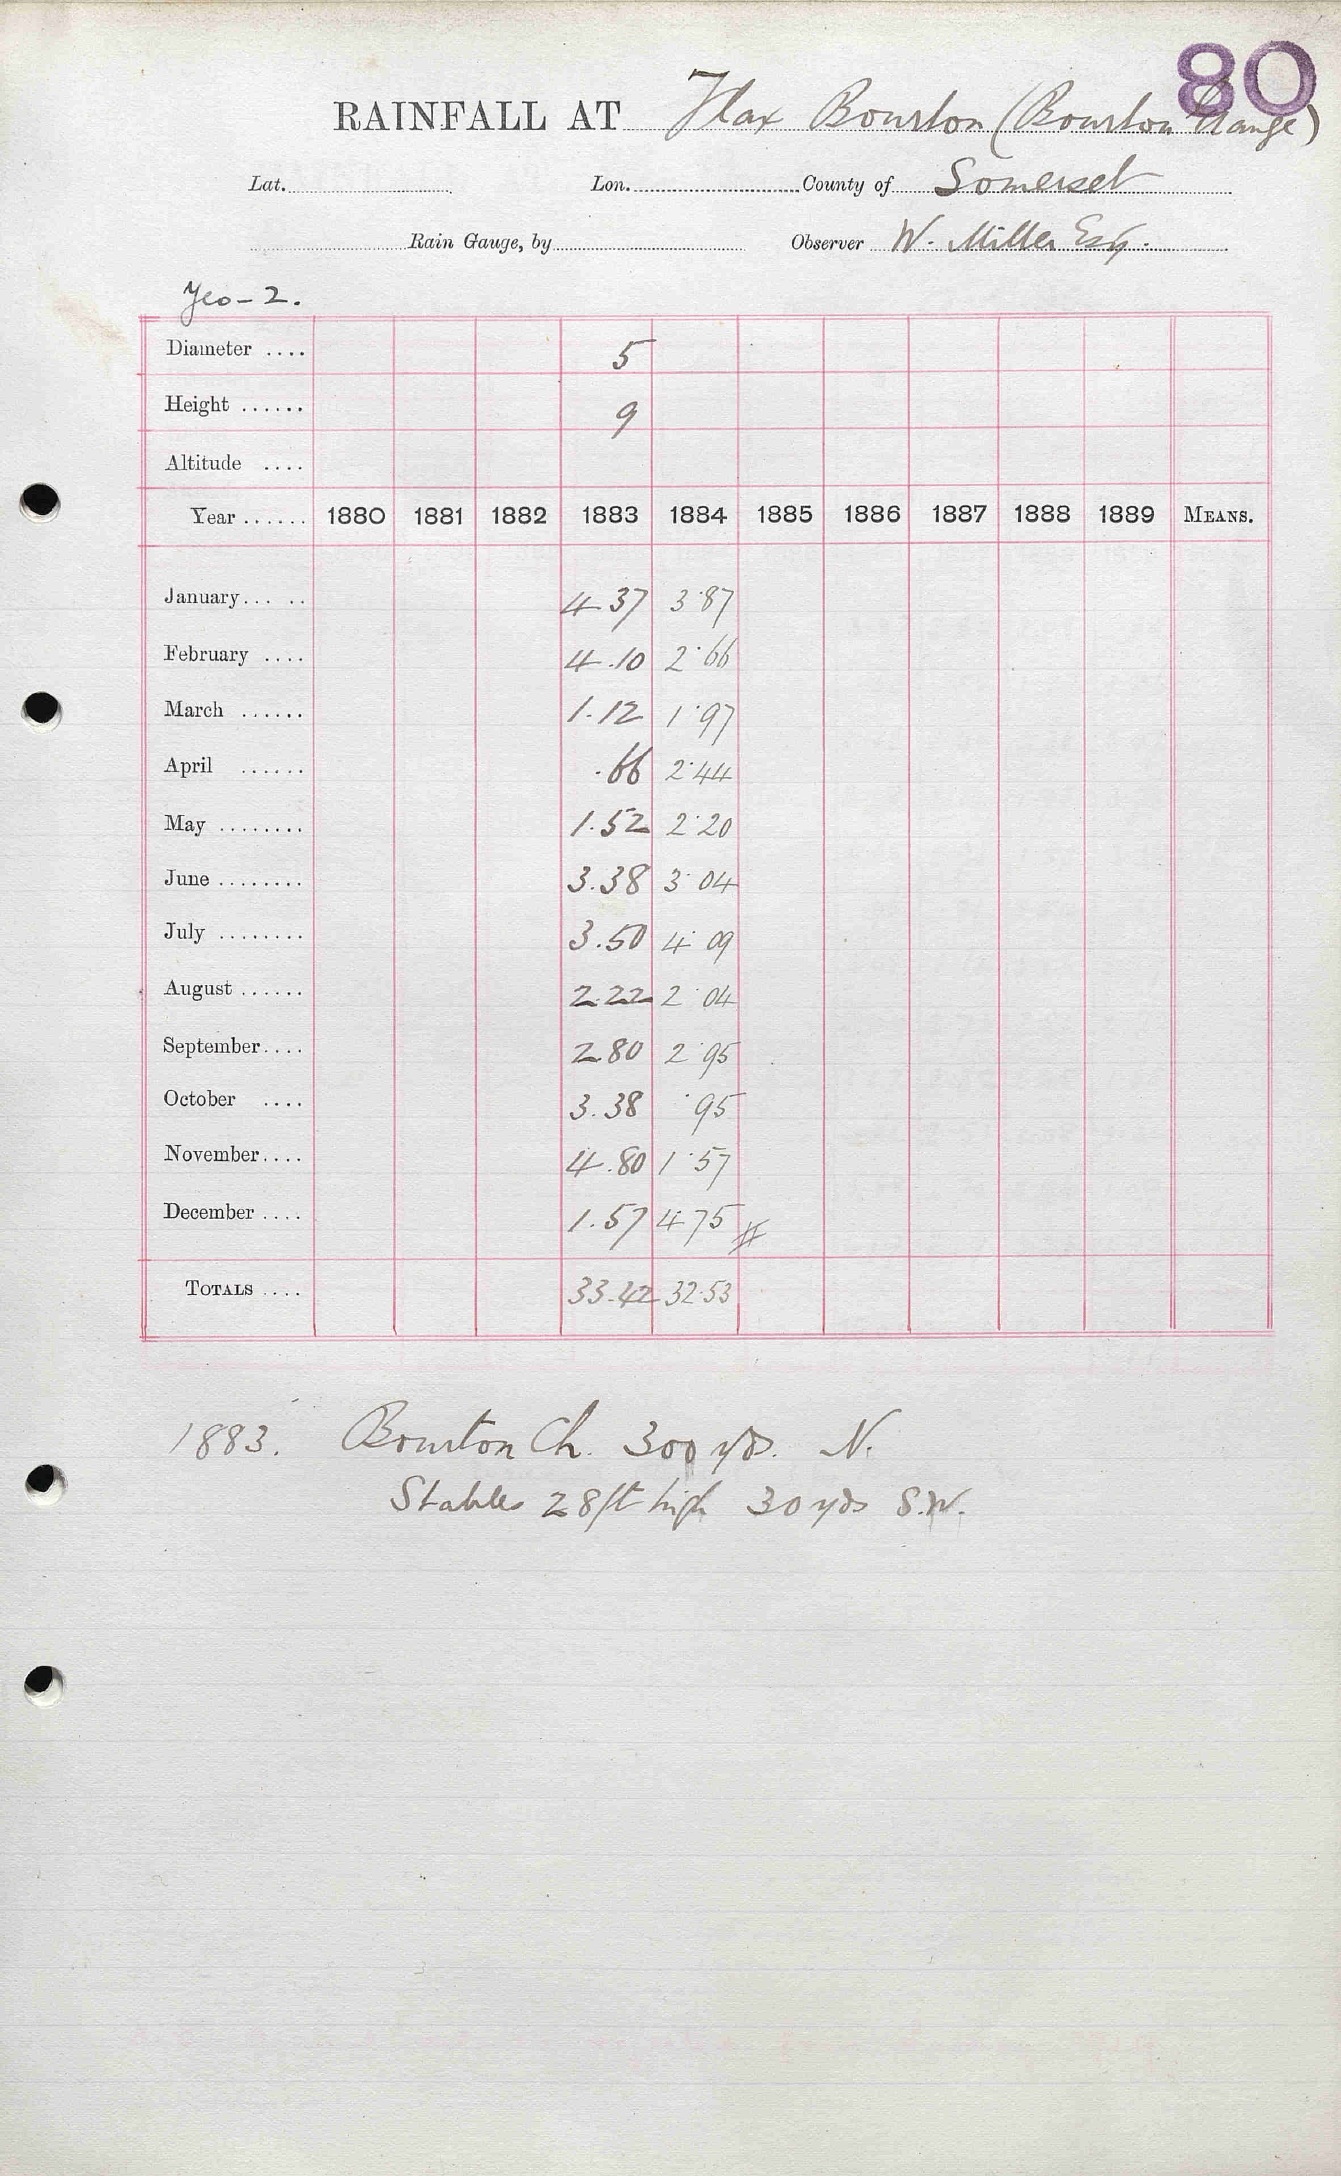 80
RAINFALL AT Flax Bourton (Bourton Grange)
Lat. Lon. County of Somerset
Rain Gauge, by Observer W. Miller Esq.
Yeo-2.
Diameter .... 5
Height ...... 9
Altitude ....
Year ...... 1880 1881 1882 1883 1884 1885 1886 1887 1888 1889 MEANS.
January... .. 4.37 3.87
February .... 4.10 2.66
March ...... 1.12 1.97
April ...... .66 2.44
May ........ 1.52 2.20
June ........ 3.38 3.04
July ........ 3.50 4.09
August ...... 2.22 2.04
September.... 2.80 2.95
October .... 3.38 .95
November.... 4.80 1.57
December .... 1.57 4.75 #
TOTALS .... 33.42 32.53
1883. Bourton Ch. 300 yds. N.
Stables 28ft high 30 yds S.W.